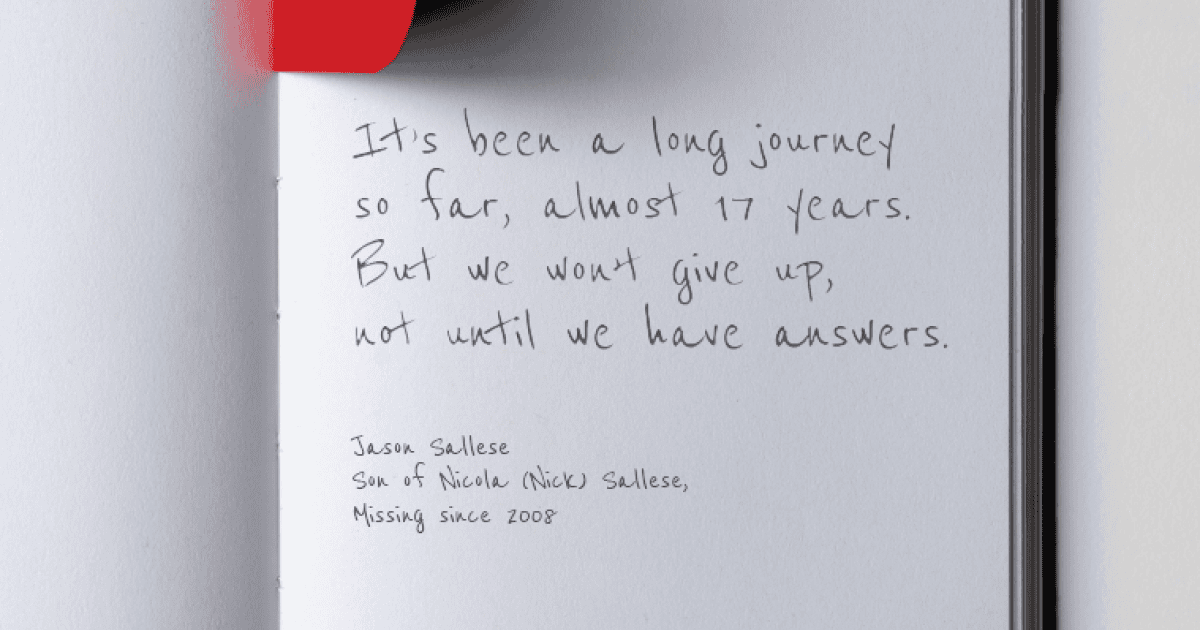 It's been a long journey
so far, almost 17 years.
But we won't give up,
not until we have answers.
Jason Sallese
Son of Nicola (Nick) Sallese,
Missing since 2008